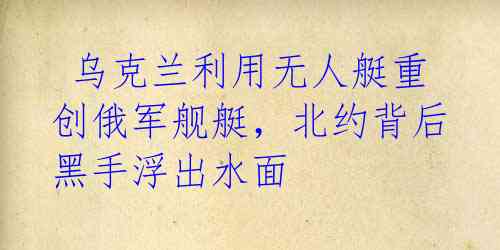 乌克兰利用无人艇重
创俄军舰艇，北约背后
黑手浮出水面